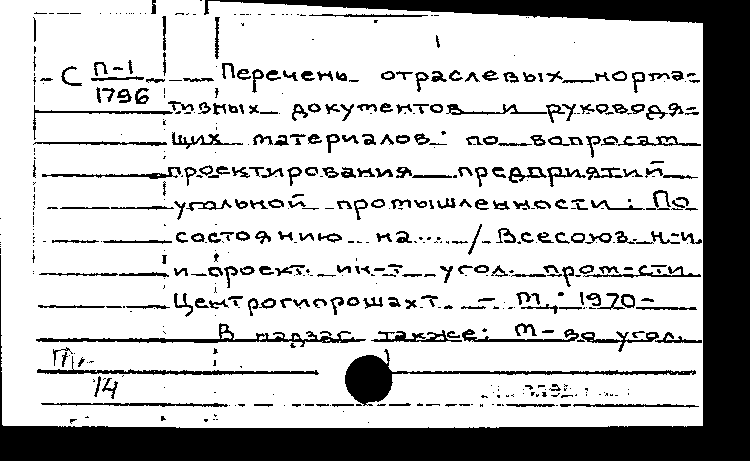 С П-1 Перечень отраслевых норма=
1796 тивных документов и руководя=
щих материалов: по вопросам
проектирования предприятий
угольной промышленности: По
состоянию на... / Всесоюз. н-и.
и проект. ин-т угол. пром-сти.
Центрогипрошахт. - М.,: 1970-
В надзаг. также: М-во угол.
14